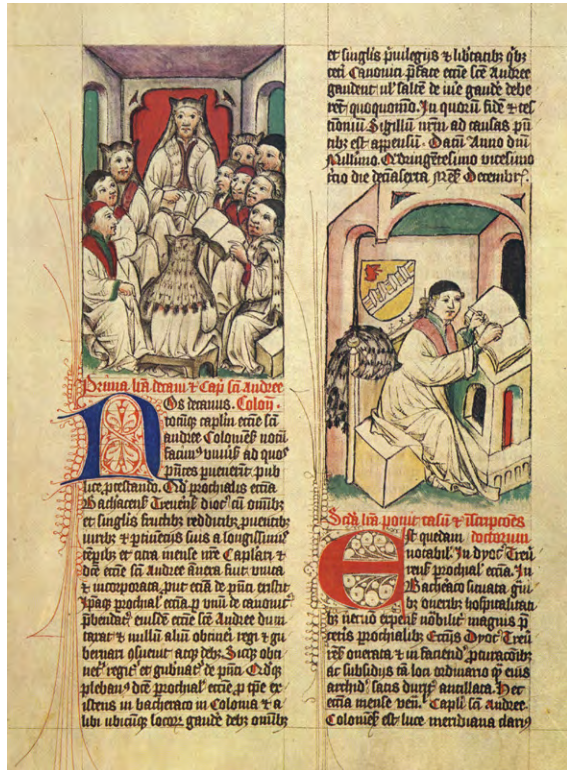 Prima lra decani et Capli sci Andree
Nos decanus . Colon .
totumq; caplm ecclie sci
andree Coloniens notum
facimus vniuersis ad quos
pntes puenerint pub
lice protestando. Qd prochialis ecclia
Bacharensis Treuerens dioc cum omnibz
et singlis fructibz redditibz puentibz
iuribz et ptinencijs suis a longissimis
tempibz et citra mense nre Caplari et
dicte ecclie sci Andree annexa fuit vnita
et incorporata, put ecclia de pnti existit
prochial ecclia p vnum de canonicis
pbendatis eiusdem ecclie sci Andree dum
taxat et nullum alium obtineri regi et gu
bernari debz. Sicq; obti
netr regitr et gubnatr de pnti Qdq;
plebanus dicte prochial ecclie, p tpe ex
istens in bacheraco in Colonia et a
libi vbicumq; locorum gaudere debz omnibz
et singlis priuilegijs et libertatibz qbz
ceteri Canonici pfate ecclie sce Andree
gaudent vel saltem de iure gaudere debe
rent quoquomodo. In quorum fidem et tes
timonium Sigillum nrm ad causas pnti
bz est appensum. Datum Anno dni
Millimo. Qdringentesimo vicesimo
tercio die decimasexta Mens Decembrs.
Scda lra ponit casum et
doctorum
Est quedam
notabil In dyoc Treue
rens prochial ecclia. In
Bacheraco situata gui
bz oneribz hospitalitati
bz necnon expens nobilit magnis p
ceteris prochialibz Ecclijs Dyoc Treue
rens onerata, et in faciend pcuracoibz
ac subsidijs tam loci ordinario qm eius
archid satis ancillata. Hec
ecclia mense ven Capli sci Andree .
Coloniens est luce meridiana clarius